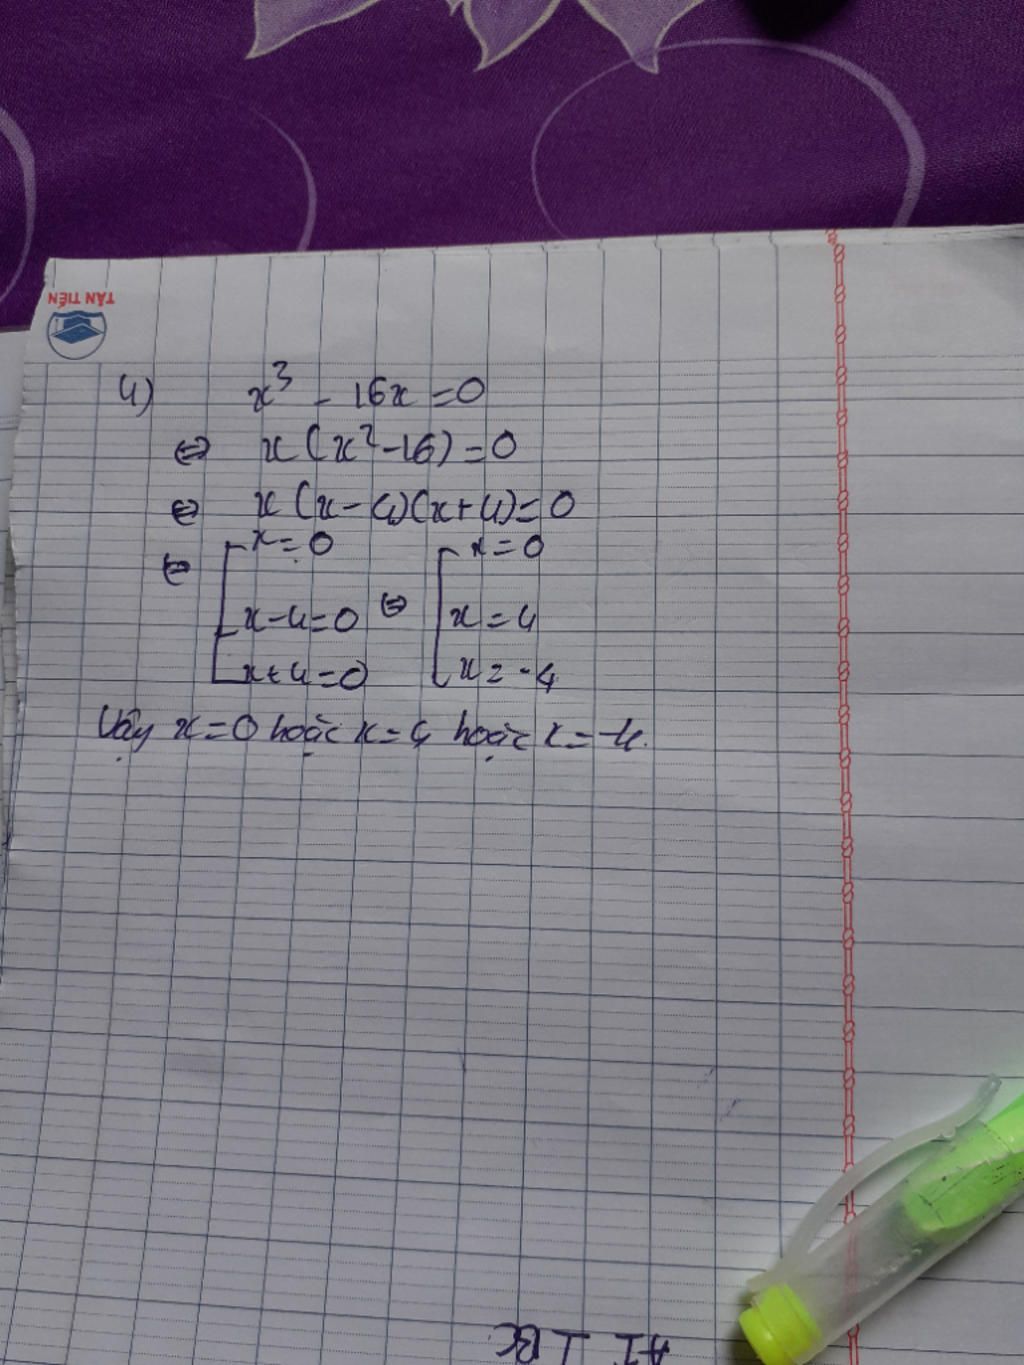 TÂN TIẾN
4) x³ - 16x = 0
⇔ x(x² - 16) = 0
⇔ x(x - 4)(x + 4) = 0
⇔ [ x = 0 [ x = 0
x - 4 = 0 ⇔ x = 4
x + 4 = 0 x = -4
Vậy x = 0 hoặc x = 4 hoặc x = -4.
AI ⊥ BC